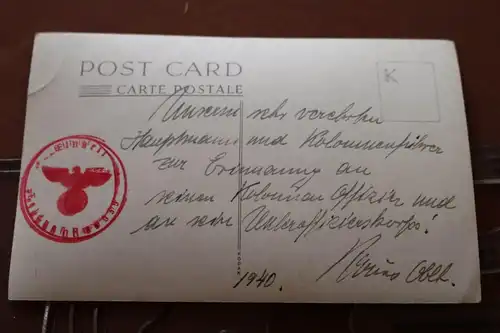 POST CARD
CARTE POSTALE
K
Unserm sehr verehrten
Hauptmann und Kolonnenführer
zur Erinnerung an
seinen Kolonnen Offizier und
an sein Unteroffizierskorps!
1940. Oblt.